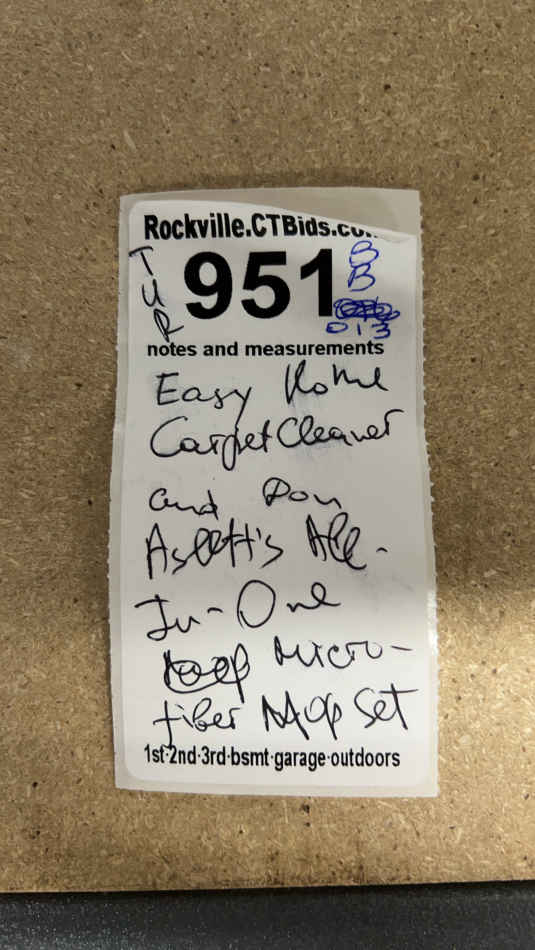 Rockville.CTBids.co
TUR
951
B
B
013
notes and measurements
Easy Home
Carpet Cleaner
and Don
Aslett's All-
In-One
Micro-
fiber Mop Set
1st·2nd·3rd·bsmt·garage·outdoors